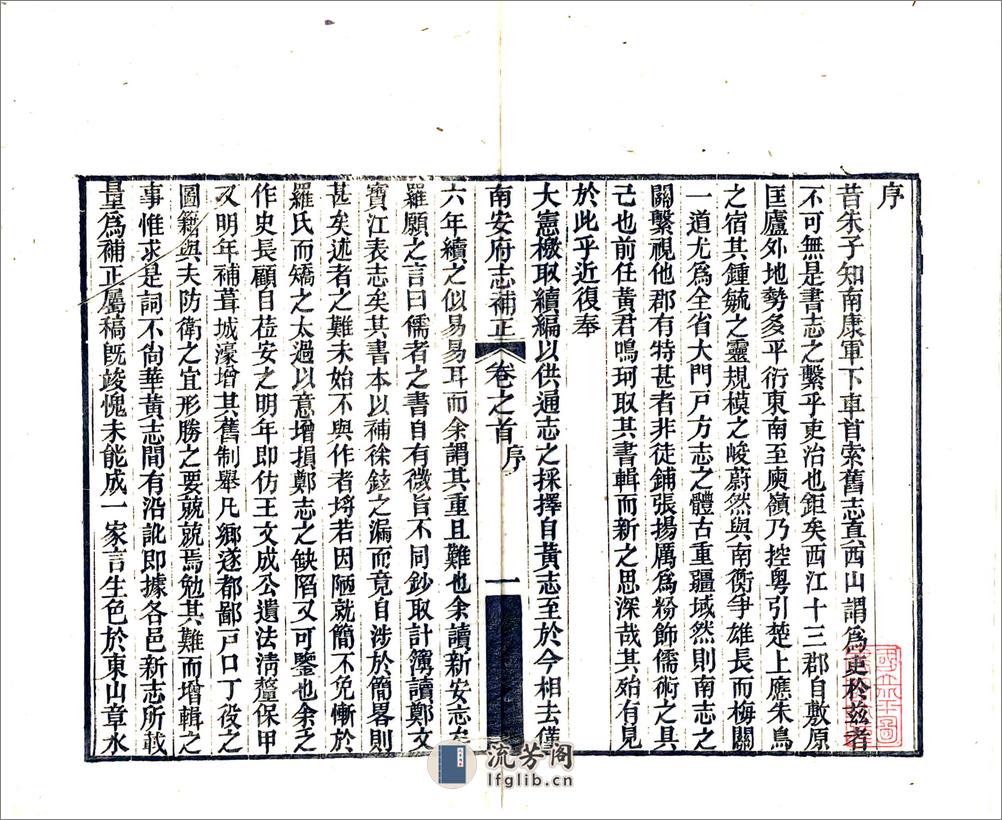 序
昔朱子知南康軍下車首索舊志真西山謂爲吏於茲者
不可無是書志之繫乎吏治也鉅矣西江十三郡自敷原
匡廬外地勢多平衍東南至庾嶺乃控粵引楚上應朱鳥
之宿其鍾毓之靈規模之峻蔚然與南衡爭雄長而梅關
一道尤爲全省大門戸方志之體古重疆域然則南志之
關繫視他郡有特甚者非徒鋪張揚厲爲粉飾儒術之具
己也前任黃君鳴珂取其書輯而新之思深哉其殆有見
於此乎近復奉
大憲檄取續編以供通志之採擇自黃志至於今相去僅
南安府志補正 卷之首 序 一
六年續之似易易耳而余謂其重且難也余讀新安志存
羅願之言曰儒者之書自有徵旨不同鈔取計簿讀鄭文
寶江表志矣其書本以補徐鉉之漏而竟自涉於簡畧則
甚矣述者之難未始不與作者埒若因陋就簡不免慚於
羅氏而矯之太過以意增損鄭志之缺陷又可鑒也余之
作史長顧自莅安之明年即仿王文成公遺法清釐保甲
又明年補葺城濠增其舊制舉凡鄉遂都鄙戸口丁役之
圖籍與夫防衛之宜形勝之要兢兢焉勉其難而增輯之
事惟求是詞不尙華黃志間有沿訛即據各邑新志所載
量爲補正屬稿既竣愧未能成一家言生色於東山章水
流芳阁
lfglib.cn